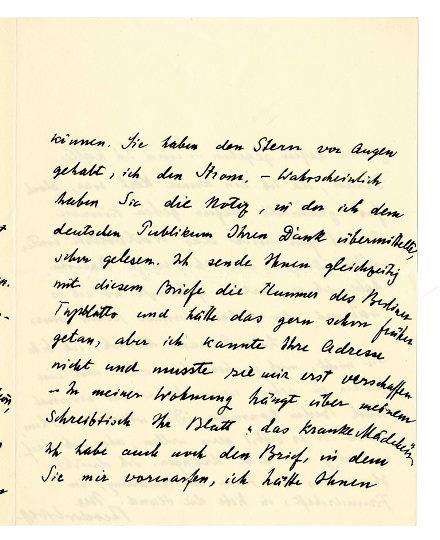 können. Sie haben den Stern vor Augen
gehabt, ich den Strom. – Wahrscheinlich
haben Sie die Notiz, in der ich dem
deutschen Publikum Ihren Dank übermittelte,
schon gelesen. Ich sende Ihnen gleichzeitig
mit diesem Briefe die Nummer des Berliner
Tageblatts und hätte das gern schon früher
getan, aber ich kannte Ihre Adresse
nicht und musste sie mir erst verschaffen.
– In meiner Wohnung hängt über meinem
Schreibtisch Ihr Blatt „das kranke Mädchen“.
Ich habe auch noch den Brief, in dem
Sie mir vorwarfen, ich hätte Ihnen